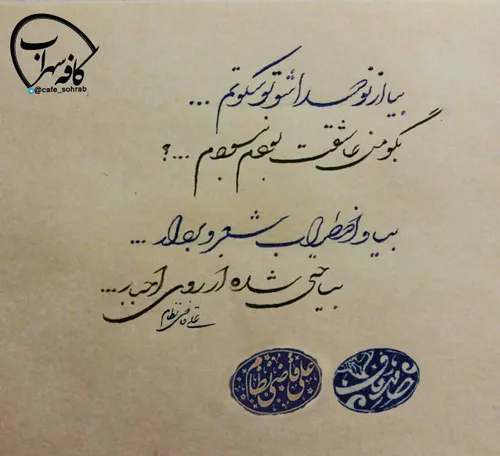 کافه سهراب
@cafe_sohrab
بیا از نو صدا شو تو سکوتم ...
بگو من عاشقت بودم نبودم ...؟
بیا و اضطراب شعرو بردار ...
بیا حتی شده از روی اجبار ...
علی قاضی نظام
علی قاضی نظام